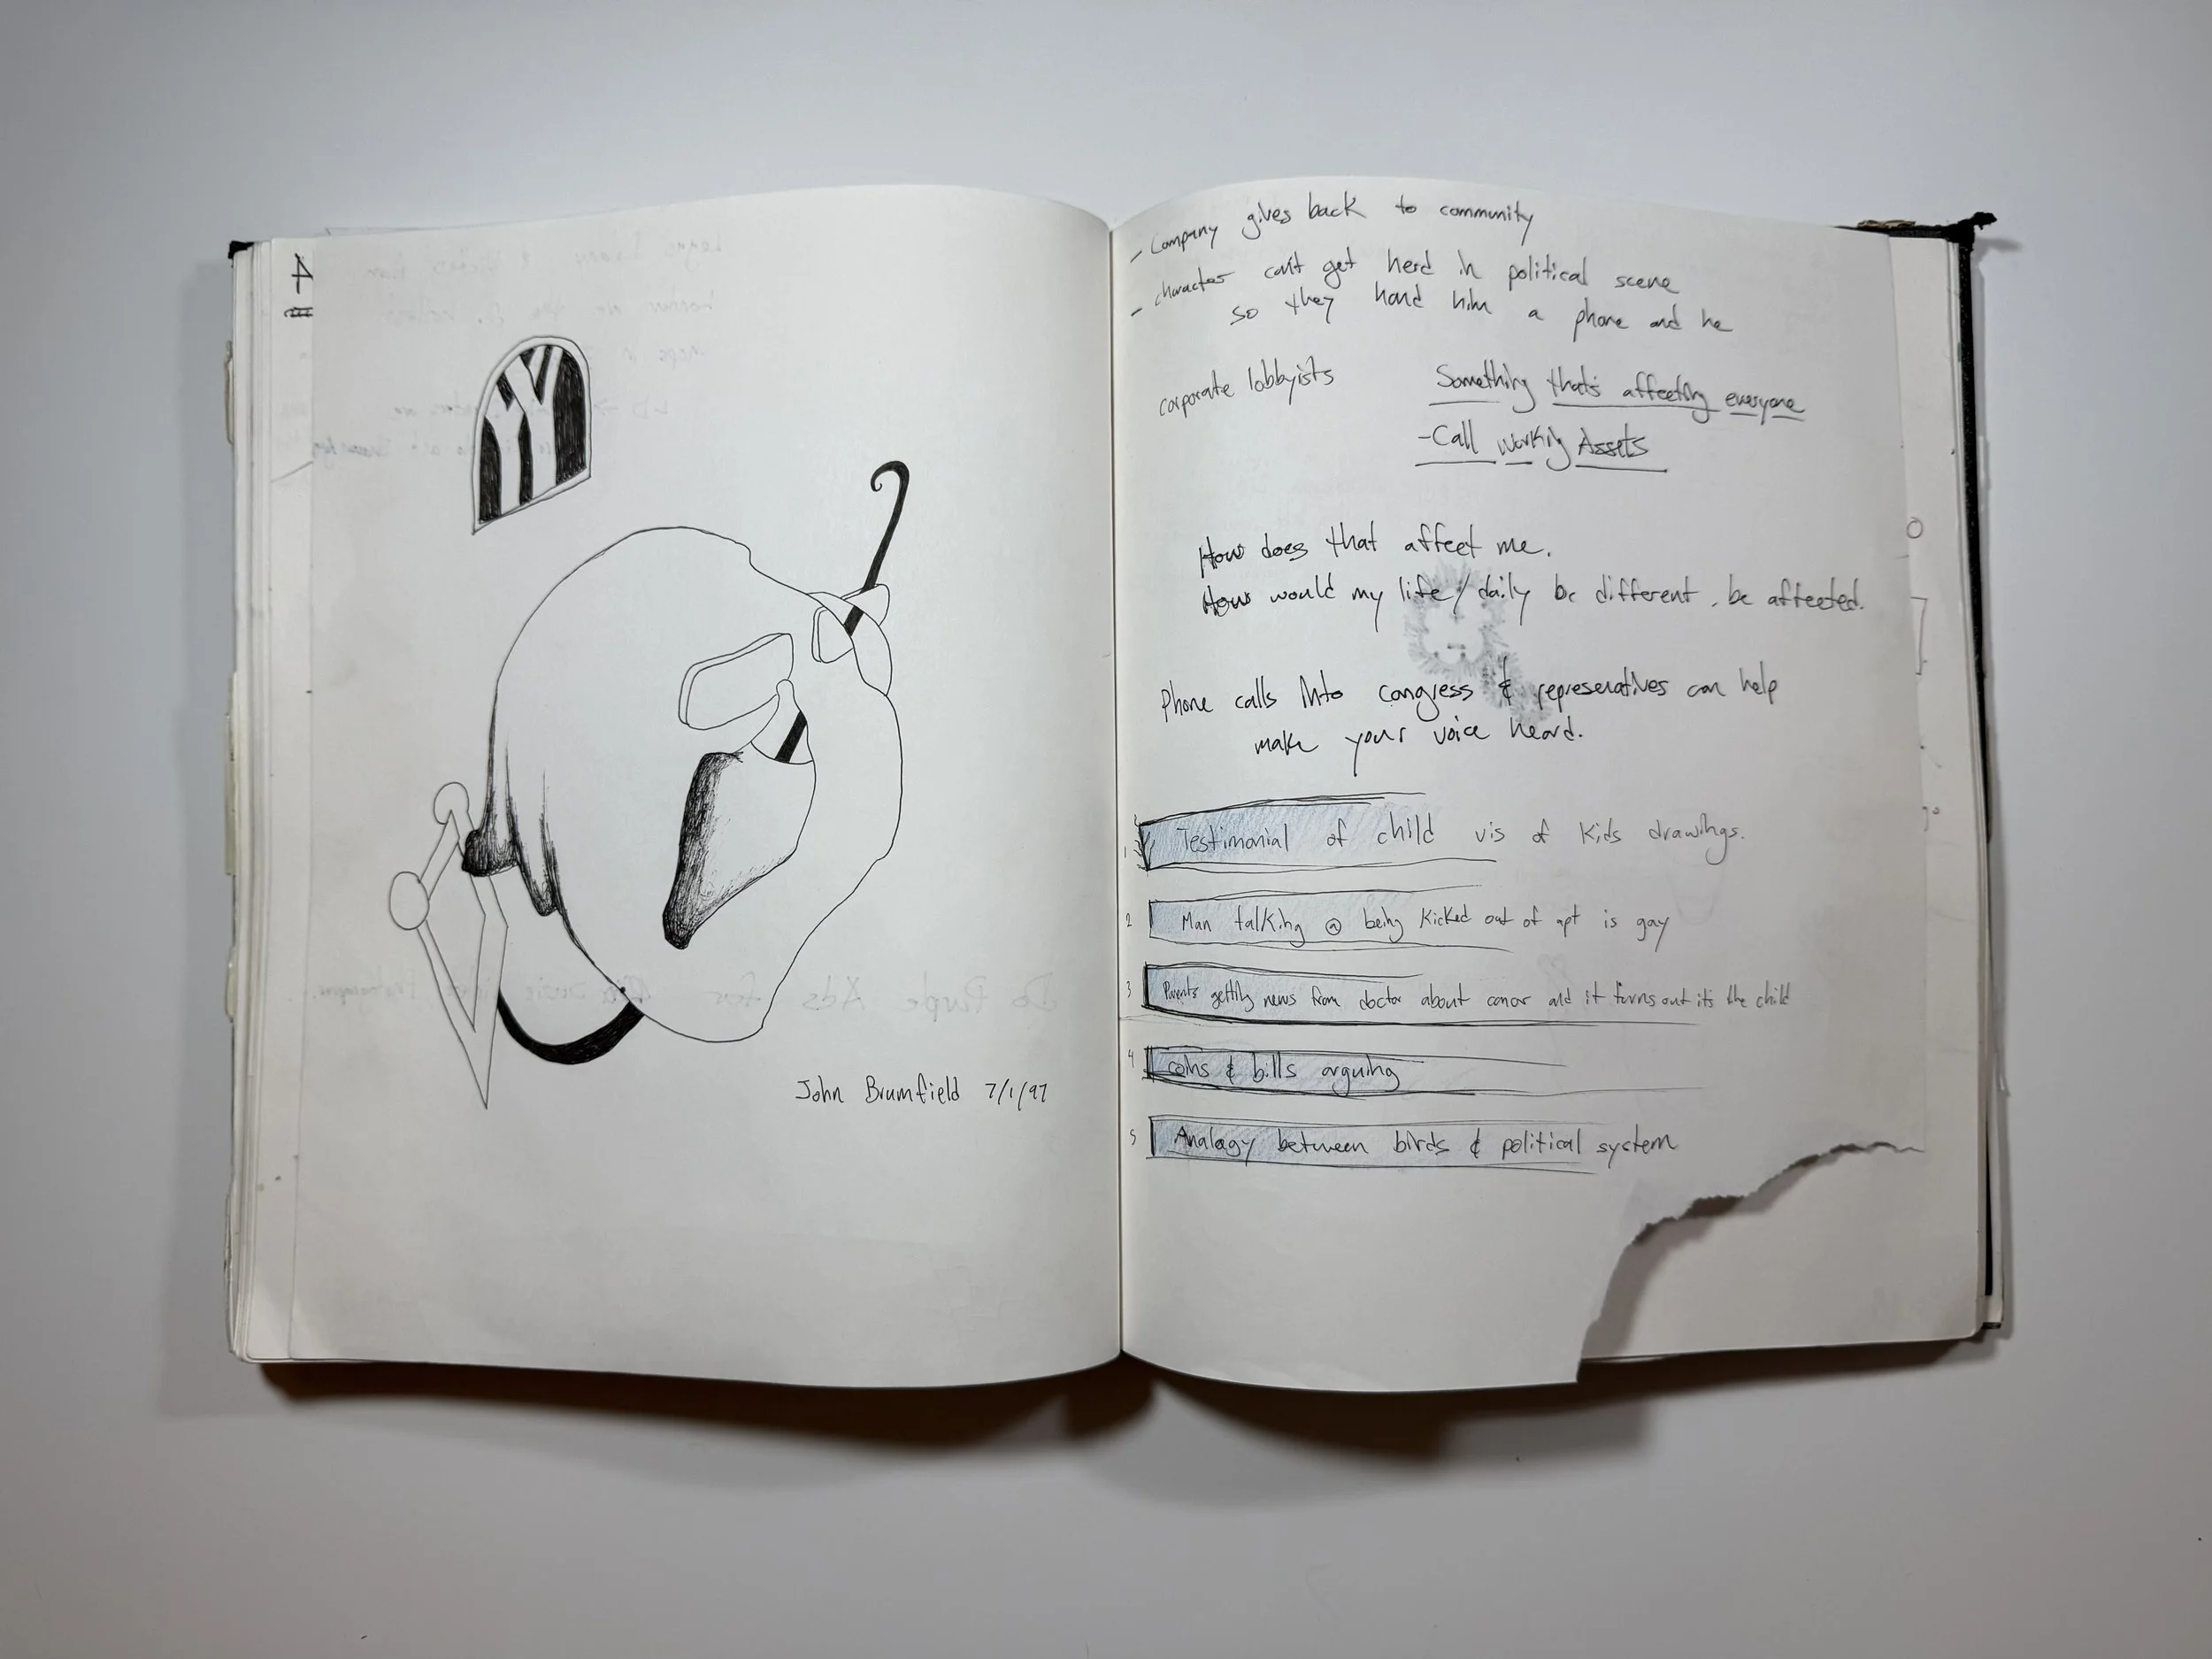 4
John Brumfield 7/1/97
- Company gives back to community
- character can't get herd in political scene
- so they hand him a phone and he
corporate lobbyists
Something that's affecting everyone
- Call Working Assets
How does that affect me.
How would my life/daily be different, be affected.
Phone calls into congress & represenatives can help
make your voice heard.
1 Testimonial of child vis of kids drawings.
2 Man talking @ being kicked out of apt is gay
3 Parents getting news from doctor about cancer and it turns out it's the child
4 coins & bills arguing
5 Analogy between birds & political system